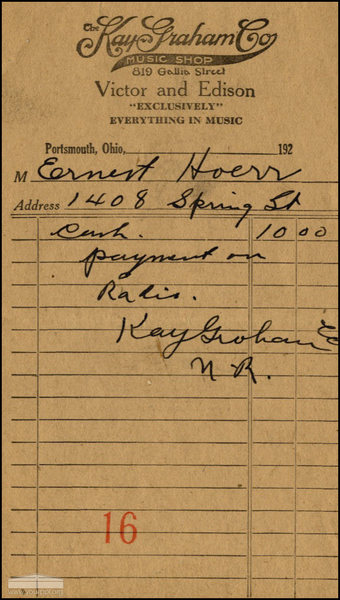 The Kay-Graham Co
MUSIC SHOP
819 Gallia Street
Victor and Edison
"EXCLUSIVELY"
EVERYTHING IN MUSIC
Portsmouth, Ohio, 192
M Ernest Hoerr
Address 1408 Spring St
Cash. 10 00
payment on
Radio.
Kay Graham Co
N.R.
16